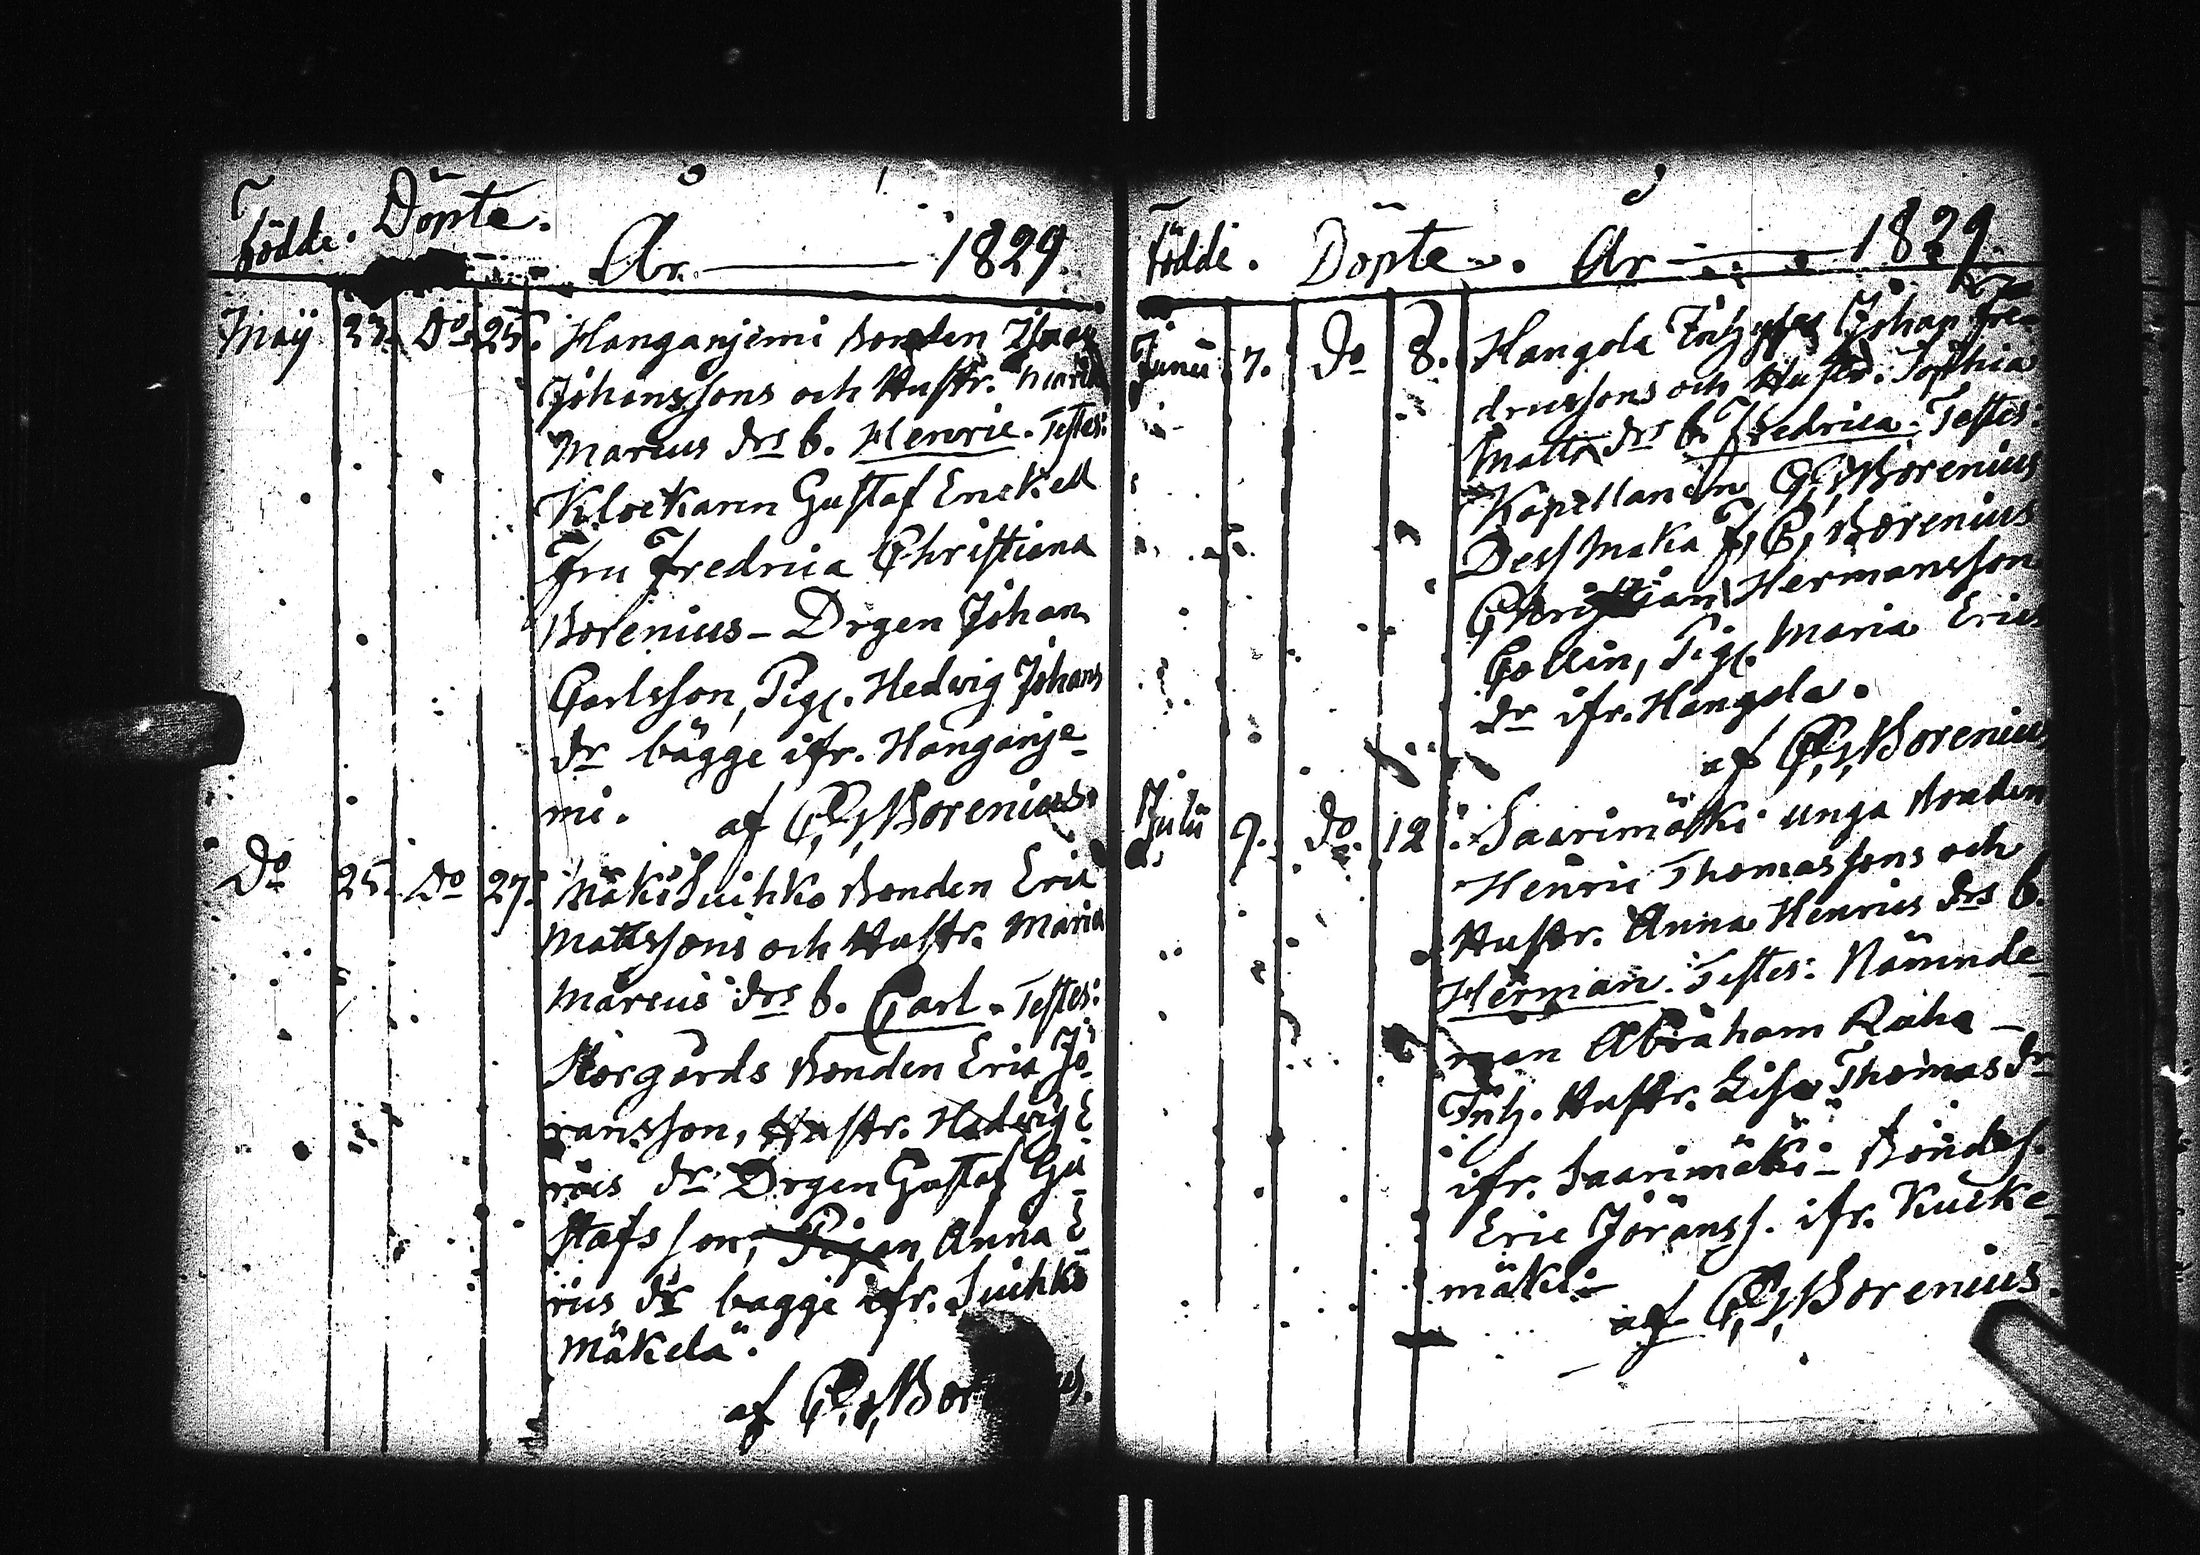 Födde. Döpte. År 1829.
Maÿ 23. Do 25. Hanganjemi Bonden Isacs
Johanssons och Hustr. Maria
Marcus drs b. Henric. Testes:
Klockaren Gustaf Enckell
Fru Fredrica Christiana
Borenius – Drgen Johan
Carlsson, Pig. Hedvig Johans
dr bägge ifr. Hanganje-
mi. af C, G, Borenius.
Do 25. Do 27. Mäki Suihko Bonden Eric
Mattssons och Hustr. Maria
Marcus drs b. Carl. Testes:
Storgårds Bonden Eric Jö-
ransson, Hustr. Hedvig E
rics dr Drgen Gustaf Gu-
stafsson, Pigan Anna E-
rics dr bägge ifr. Suihko
Mäkelä.
af C, G, Bor us.
Födde. Döpte. År 1829.
Junii 7. do 8. Hangola Inhyses Johan Fre-
dricssons och Hustr. Sophia
Matts drs b. Fredrica. Testes:
Kapellanen C, G, Borenius
Dess Maka F, C, Borenius
Christian Hermansson
Collin, Pig. Maria Erics
dr ifr. Hangola.
af C, G, Borenius
Julii 9. do. 12. Saarimäki unga Bonden
Henric Thomassons och
Hustr. Anna Henrics drs b.
Herman. Testes: Nämnde-
man Abraham Raiha –
Inh. Hustr. Lisa Thomas dr
ifr. Saarimäki – Bondes.
Eric Jöranss. ifr. Kucke-
mäki –
af C, G, Borenius.